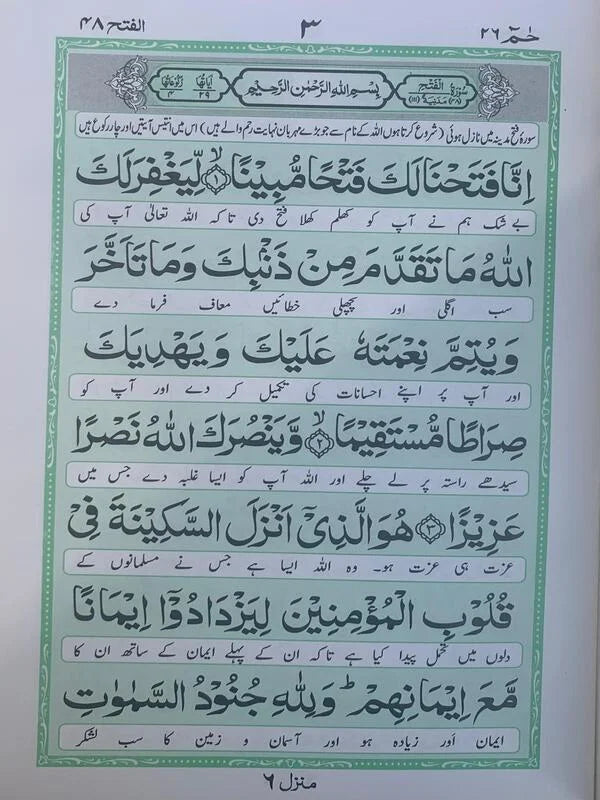 حٰمٓ ٢٦
٣
الفتح ٤٨
سُوْرَةُ الْفَتْحِ
(٤٨) مَدَنِيَّةٌ (١١١)
بِسْمِ اللهِ الرَّحْمٰنِ الرَّحِيْمِ
اٰيَاتُهَا ٢٩
رُكُوْعَاتُهَا ٤
سورۂ فتح مدینہ میں نازل ہوئی (شروع کرتا ہوں اللہ کے نام سے جو بڑے مہربان نہایت رحم والے ہیں) اس میں انتیس آیتیں اور چار رکوع ہیں
اِنَّا فَتَحْنَا لَكَ فَتْحًا مُّبِيْنًا ۙ﴿١﴾ لِّيَغْفِرَ لَكَ
بے شک ہم نے آپ کو کھلم کھلا فتح دی تاکہ اللہ تعالیٰ آپ کی
اللهُ مَا تَقَدَّمَ مِنْ ذَنْۢبِكَ وَمَا تَاَخَّرَ
سب اگلی اور پچھلی خطائیں معاف فرما دے
وَيُتِمَّ نِعْمَتَهٗ عَلَيْكَ وَيَهْدِيَكَ
اور آپ پر اپنے احسانات کی تکمیل کر دے اور آپ کو
صِرَاطًا مُّسْتَقِيْمًا ۙ﴿٢﴾ وَّيَنْصُرَكَ اللهُ نَصْرًا
سیدھے راستہ پر لے چلے اور اللہ آپ کو ایسا غلبہ دے جس میں
عَزِيْزًا ﴿٣﴾ هُوَ الَّذِيْۤ اَنْزَلَ السَّكِيْنَةَ فِيْ
عزت ہی عزت ہو۔ وہ اللہ ایسا ہے جس نے مسلمانوں کے
قُلُوْبِ الْمُؤْمِنِيْنَ لِيَزْدَادُوْۤا اِيْمَانًا
دلوں میں تحمل پیدا کیا ہے تاکہ ان کے پہلے ایمان کے ساتھ ان کا
مَّعَ اِيْمَانِهِمْ ؕ وَلِلّٰهِ جُنُوْدُ السَّمٰوٰتِ
ایمان اور زیادہ ہو اور آسمان و زمین کا سب لشکر
منزل ٦